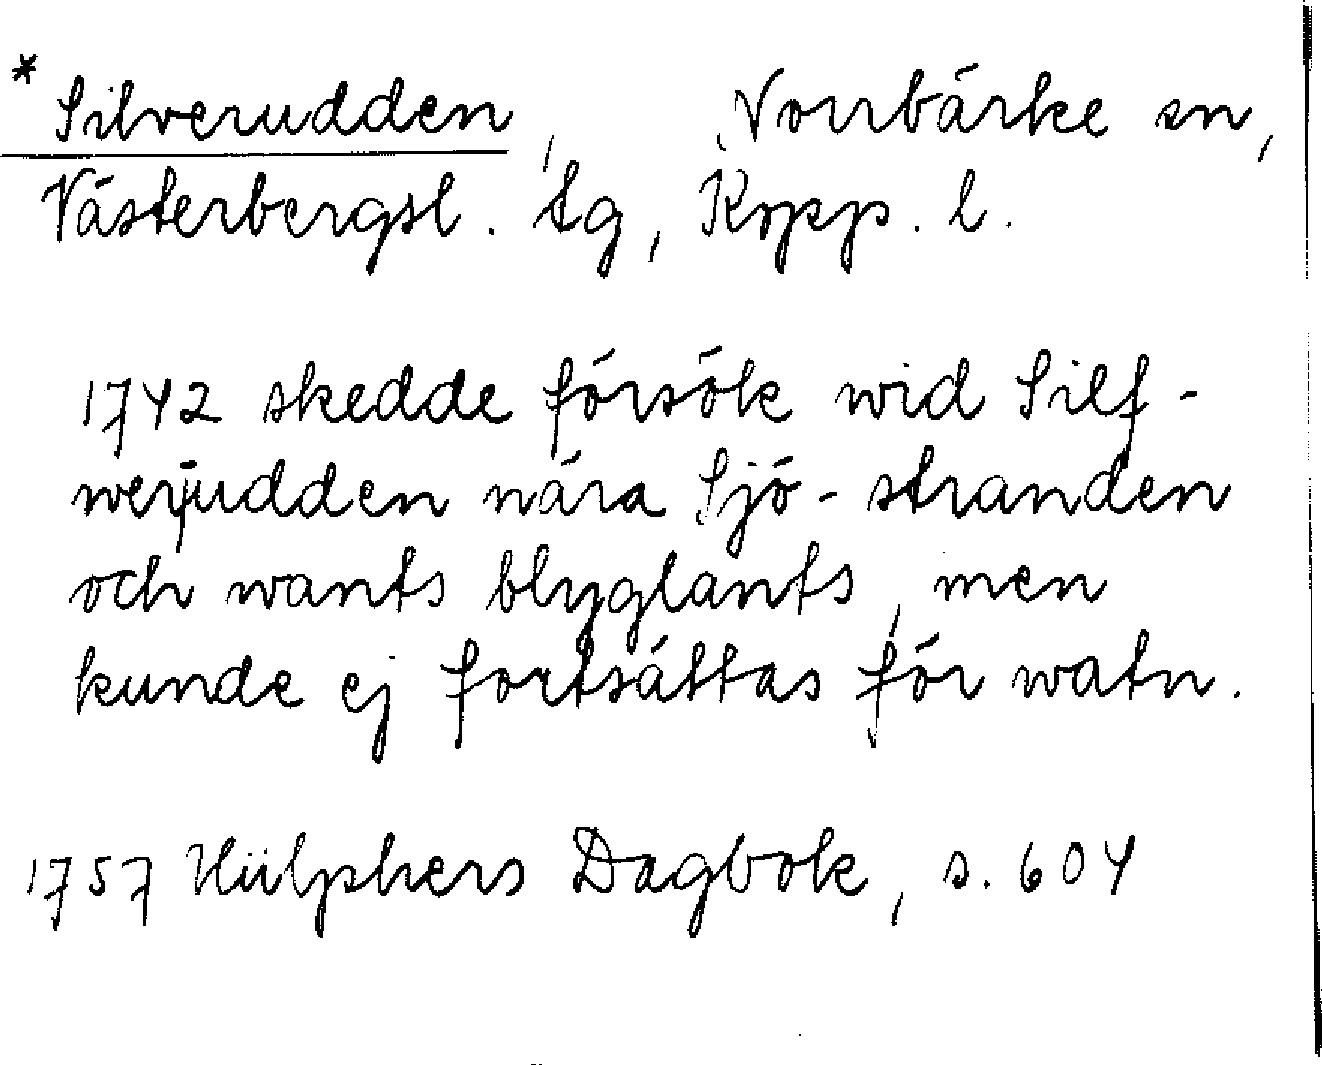 * Silverudden, Norrbärke sn,
Västerbergsl. tg, Kopp. l.
1742 skedde försök wid Silf-
werudden nära Sjö-stranden
och wants blyglants, men
kunde ej fortsättas för watn.
1757 Hülphers Dagbok, s. 604